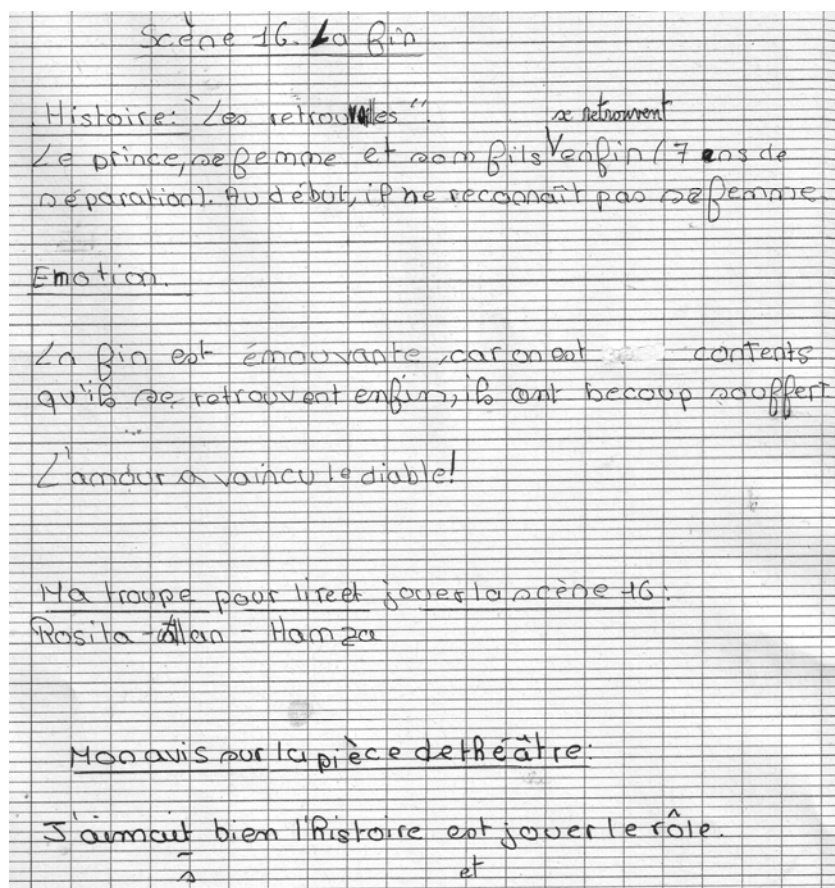 Scène 16. La fin
Histoire: "Les retrouvailles".
se retrouvent
Le prince, sa femme et son fils V enfin (7 ans de
séparation). Au début, il ne reconnaît pas sa femme.
Emotion.
La fin est émouvante, car on est contents
qu'ils se retrouvent enfin, ils ont becoup souffert
...
L'amour a vaincu le diable!
Ma troupe pour lire et jouer la scène 16:
Rosita - Allan - Hamza
Mon avis sur la pièce de théâtre:
J'aimait bien l'histoire est jouer le rôle.
s et